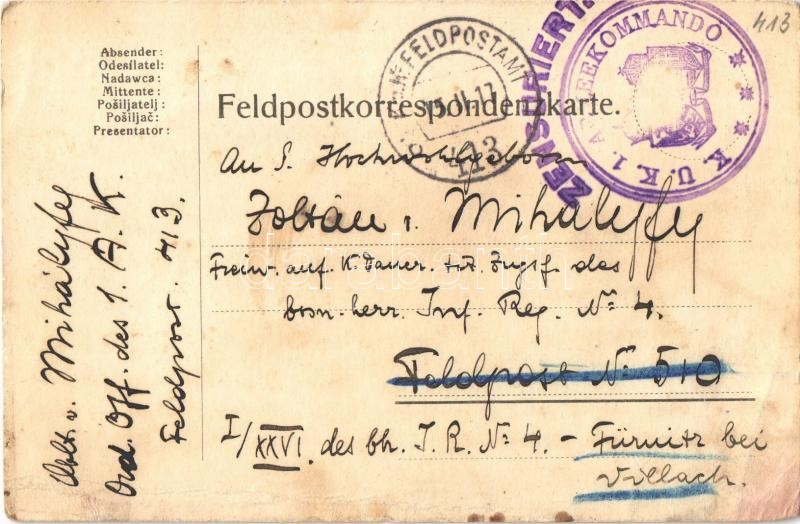 Absender:
Odesílatel:
Nadawca:
Mittente:
Pošiljatelj:
Pošiljač:
Presentator:
413
K.u.K. FELDPOSTAMT
413
ZENSURIERT.
K. U. K. 1. ARMEEKOMMANDO
Feldpostkorrespondenzkarte.
An S. Hochwohlgeboren
Zoltán v. Mihályfy
Freiw. auf K'dauer. tit. Zugsf. des
bosn. herz. Inf. Reg. № 4.
Feldpost № 510
I/XXVI. des bh. I. R. № 4. – Fürnitz bei
Villach.
v. Mihályfy
Ord. Off. des 1. A. K.
Feldpost. 413.
darabanth